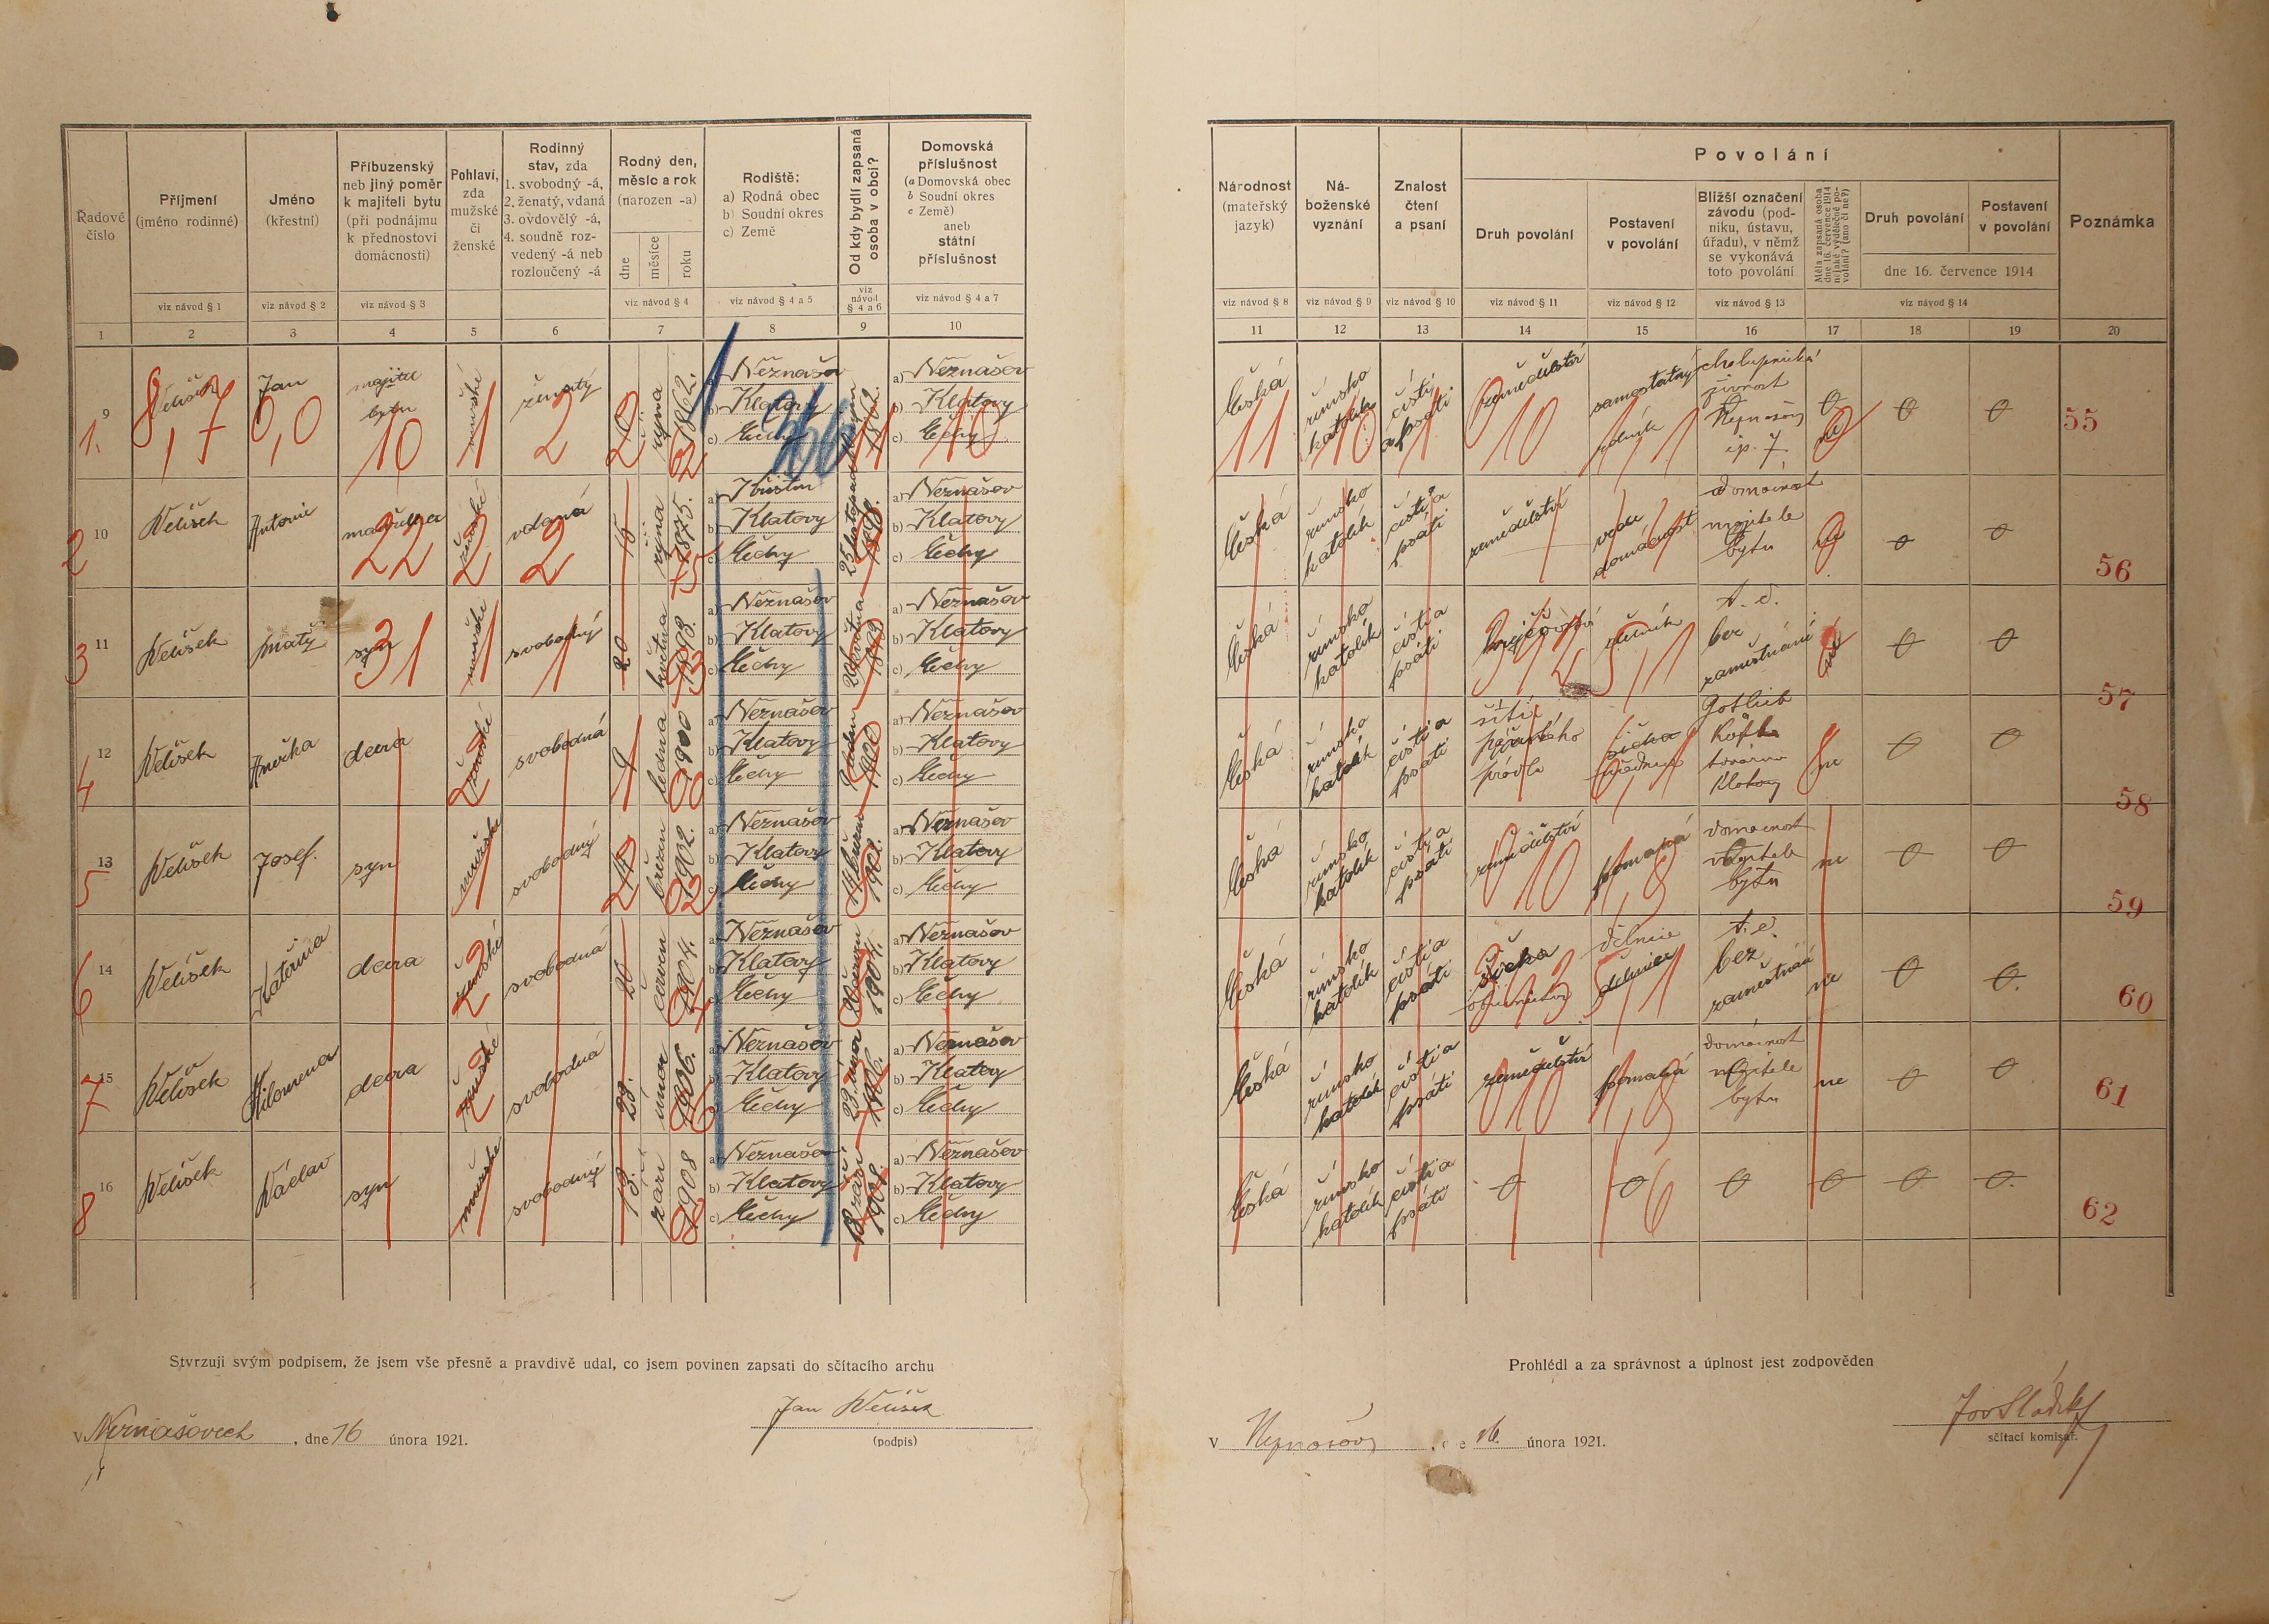 Řadové číslo
Příjmení
(jméno rodinné)
viz návod § 1
Jméno
(křestní)
viz návod § 2
Příbuzenský
neb jiný poměr
k majiteli bytu
(při podnájmu
k přednostovi
domácnosti)
viz návod § 3
Pohlaví,
zda
mužské
či
ženské
Rodinný
stav, zda
1. svobodný -á,
2. ženatý, vdaná
3. ovdovělý -á,
4. soudně roz-
vedený -á neb
rozloučený -á
Rodný den,
měsíc a rok
(narozen -a)
dne
měsíce
roku
viz návod § 4
Rodiště:
a) Rodná obec
b) Soudní okres
c) Země
viz návod § 4 a 5
Od kdy bydlí zapsaná
osoba v obci?
viz
návod
§ 4 a 6
Domovská
příslušnost
(a Domovská obec
b Soudní okres
c Země)
aneb
státní
příslušnost
viz návod § 4 a 7
Národnost
(mateřský
jazyk)
viz návod § 8
Ná-
boženské
vyznání
viz návod § 9
Znalost
čtení
a psaní
viz návod § 10
Povolání
Druh povolání
viz návod § 11
Postavení
v povolání
viz návod § 12
Bližší označení
závodu (pod-
niku, ústavu,
úřadu), v němž
se vykonává
toto povolání
viz návod § 13
Měla zapsaná osoba
dne 16. července 1914
nějaké výdělečné po-
volání? (ano či ne?)
Druh povolání
Postavení
v povolání
dne 16. července 1914
viz návod § 14
Poznámka
1 2 3 4 5 6 7 8 9 10 11 12 13 14 15 16 17 18 19 20
9 1. Velíšek Jan majitel bytu mužské ženatý října 1862.
a) Neznašov
b) Klatovy
c) Čechy
a) Neznašov
b) Klatovy
c) Čechy
Česká římsko katolík čísti a psáti zemědělství samostatný rolník chalupnická živnost čp. 7. ne 0 0 55
10 2 Velíšek Antonie manželka ženské vdaná 15 října 1875.
b) Klatovy
c) Čechy
1898.
a) Neznašov
b) Klatovy
c) Čechy
Česká římsko katolík čísti a psáti zemědělství vede domácnost domácnost majitele bytu ne 0 0 56
11 3 Velíšek Matěj syn mužské svobodný 20 května 1898.
a) Neznašov
b) Klatovy
c) Čechy
a) Neznašov
b) Klatovy
c) Čechy
Česká římsko katolík čísti a psáti t. č. bez zaměstnání ne 0 0 57
12 4 Velíšek Anežka dcera ženské svobodná ledna 1900
a) Neznašov
b) Klatovy
c) Čechy
1900
a) Neznašov
b) Klatovy
c) Čechy
Česká římsko katolík čísti a psáti šití prádla Gotlieb továrna Klatovy ne 0 0 58
13 5 Velíšek Josef. syn mužské svobodný březen 1902.
a) Neznašov
b) Klatovy
c) Čechy
1902.
a) Neznašov
b) Klatovy
c) Čechy
Česká římsko katolík čísti a psáti zemědělství pomahá domácnost majitele bytu ne 0 0 59
14 6 Velíšek dcera ženské svobodná 20 červen 1904.
a) Neznašov
b) Klatovy
c) Čechy
1904.
a) Neznašov
b) Klatovy
c) Čechy
Česká římsko katolík čísti a psáti šička dělnice t. č. bez zaměstnání ne 0 0. 60
15 7 Velíšek Filomena dcera ženské svobodná 23. února 1906.
a) Neznašov
b) Klatovy
c) Čechy
23. února 1906.
a) Neznašov
b) Klatovy
c) Čechy
Česká římsko katolík čísti a psáti zemědělství pomahá domácnost majitele bytu ne 0 0 61
16 8 Velíšek Václav syn mužské svobodný 18. září 1908
a) Neznašov
b) Klatovy
c) Čechy
18 září 1908.
a) Neznašov
b) Klatovy
c) Čechy
Česká římsko katolík čísti a psáti 0 0 0 0 0 0. 62
Stvrzuji svým podpisem, že jsem vše přesně a pravdivě udal, co jsem povinen zapsati do sčítacího archu
V Neznašovech, dne 16 února 1921.
Jan Velíšek
(podpis)
Prohlédl a za správnost a úplnost jest zodpověden
V Neznašově, dne 16. února 1921.
sčítací komisař.